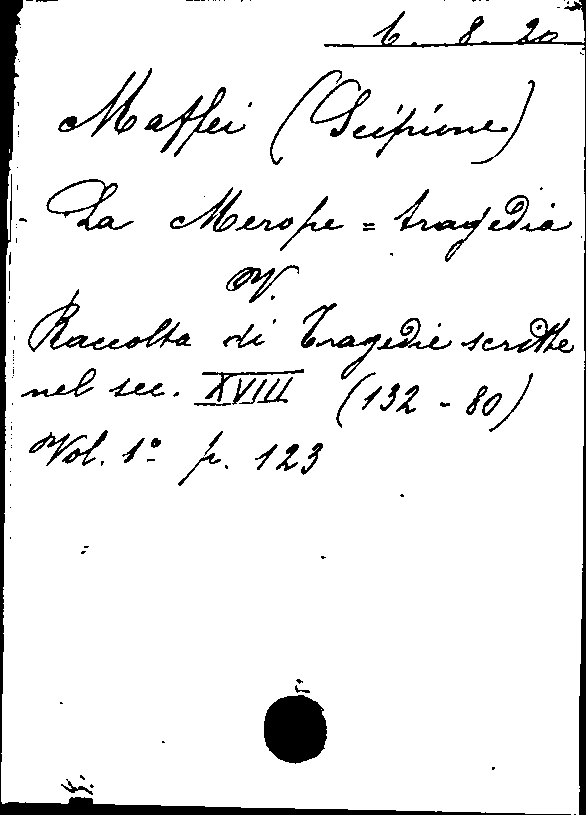 6. 8. 20
Maffei (Scipione)
La Merope = tragedia
V.
Raccolta di Tragedie scritte
nel sec. XVIII (132 - 80)
Vol. 1º p. 123